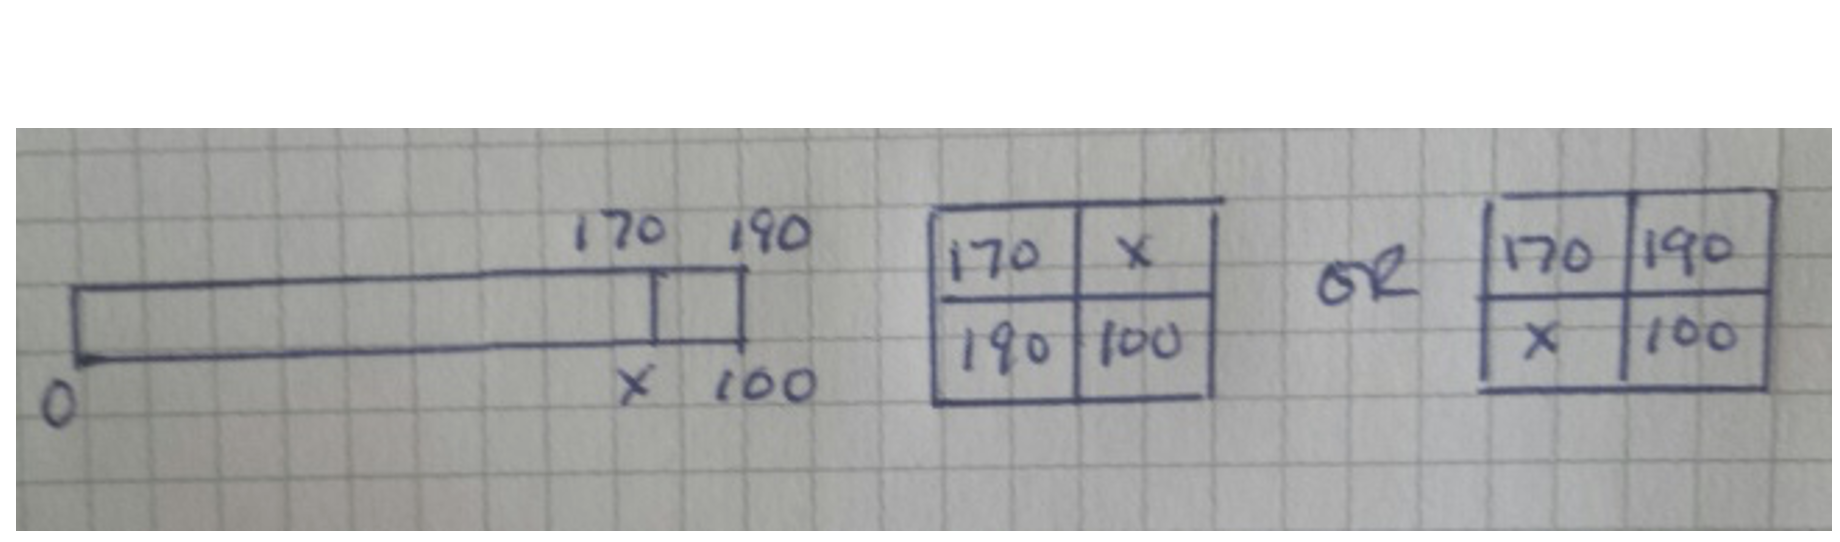 170 190
0 x 100
170 x
190 100
OR
170 190
x 100